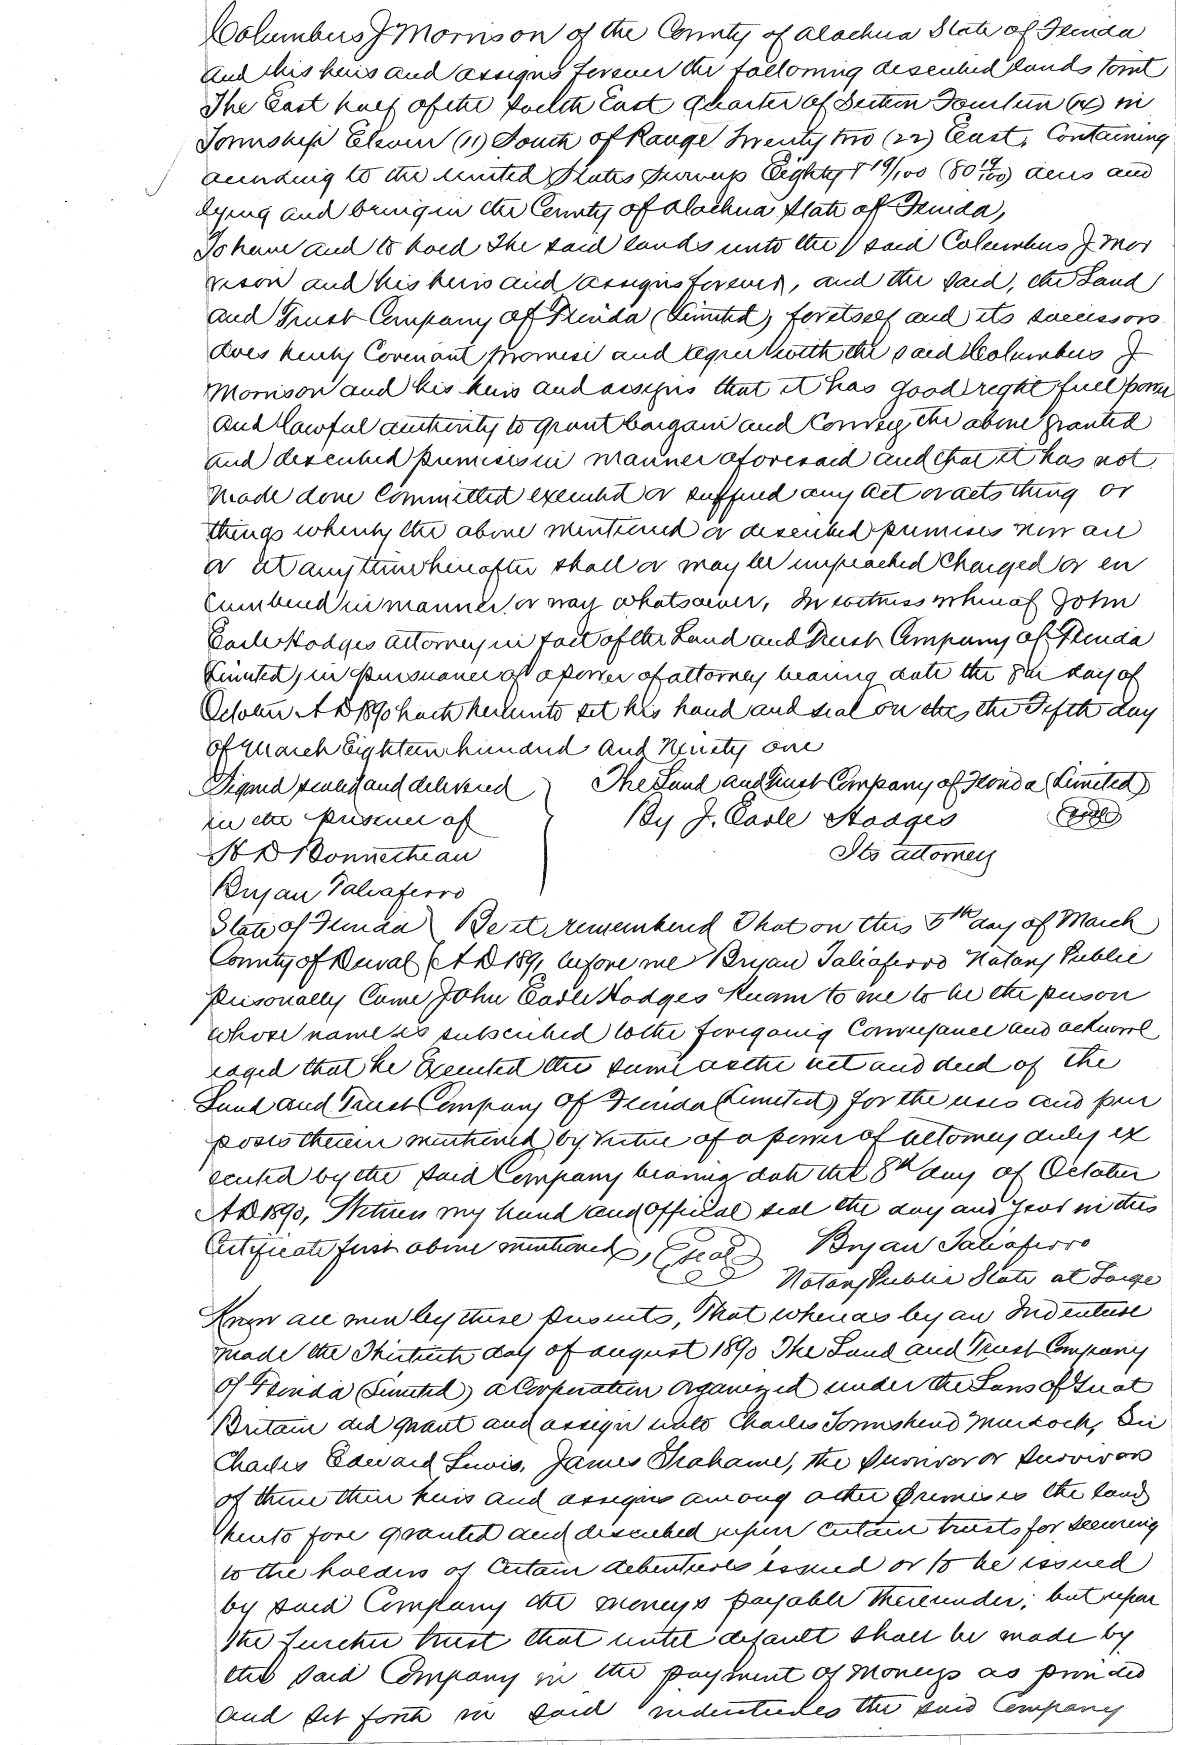 Columbus J Morrison of the County of Alachua State of Florida
and his heirs and assigns forever the following described lands towit
The East half of the South East quarter of Section Fourteen (14) in
Township Eleven (11) South of Range Twenty two (22) East, Containing
according to the United States Surveys Eighty & 19/100 (80 19/100) acres and
lying and being in the County of Alachua State of Florida,
To have and to hold The said lands unto the said Columbus J Mor
rison and his heirs and assigns forever, and the said, the Land
and Trust Company of Florida (Limited) for itself and its successors
does hereby Covenant promise and agree with the said Columbus J
Morrison and his heirs and assigns that it has good right full power
and lawful authority to grant bargain and Convey the above granted
and described premises in manner aforesaid and that it has not
made done Committed executed or suffered any act or acts thing or
things whereby the above mentioned or described premises now are
or at any time hereafter shall or may be impeached Charged or en
cumbered in manner or way whatsoever, In witness whereof John
Earle Hodges attorney in fact of the Land and Trust Company of Florida
Limited) in pursuance of a power of attorney bearing date the 8th day of
October A D 1890 hath hereunto set his hand and seal on this the Fifth day
of March Eighteen hundred and Ninety one
Signed sealed and delivered } The Land and Trust Company of Florida (Limited)
in the presence of By J. Earle Hodges (seal)
H D Bonnetheau Its attorney
Bryan Taliaferro
State of Florida } Be it remembered That on this 5th day of March
County of Duval } A D 1891, before me Bryan Taliaferro Notary Public
personally Came John Earle Hodges Known to me to be the person
whose name is subscribed to the foregoing Conveyance and acknowl
edged that he Executed the same as the act and deed of the
Land and Trust Company Of Florida (Limited) for the uses and pur
poses therein mentioned by virtue of a power of attorney duly ex
ecuted by the said Company bearing date the 8th day of October
A D 1890, Witness my hand and official seal the day and year in this
Certificate first above mentioned, (Seal) Bryan Taliaferro
Notary Public State at Large
Know all men by these presents, That whereas by an Indenture
made the Thirtieth day of August 1890 The Land and Trust Company
of Florida (Limited) a Corporation organized under the Laws of Great
Britain did grant and assign unto Charles Townshend Murdock, Sir
Charles Edward Lewis, James Grahame, the survivor or survivors
of them their heirs and assigns among other premises the land
hereto fore granted and described upon certain trusts for securing
to the holders of Certain debentures issued or to be issued
by said Company the moneys payable thereunder; but upon
the further trust that until default shall be made by
the said Company in the payment of moneys as provided
and set forth in said indentures the said Company